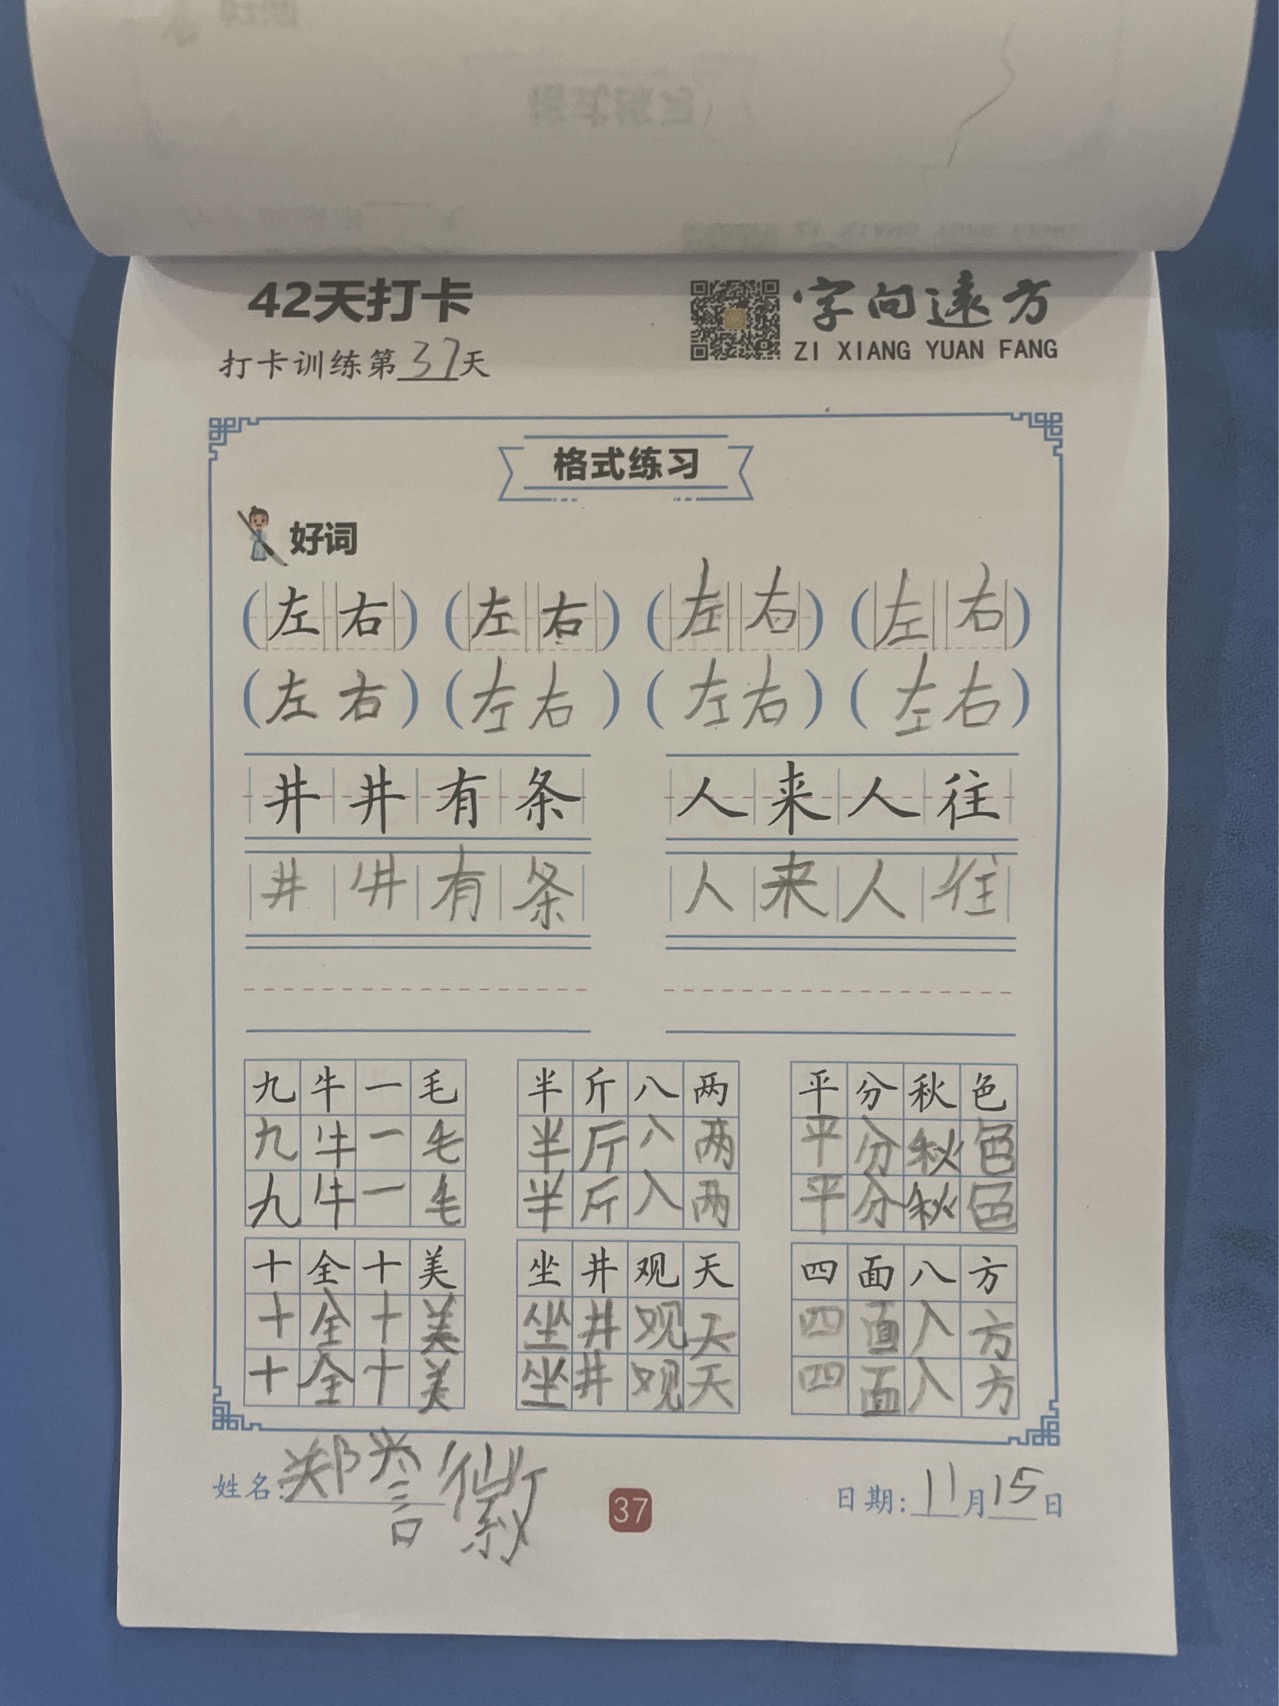 42天打卡
字向远方
打卡训练第37天
ZI XIANG YUAN FANG
格式练习
好词
(左右) (左右) (左右) (左右)
(左右) (左右) (左右) (左右)
井井有条 人来人往
井井有条 人来人往
九牛一毛 半斤八两 平分秋色
九牛一毛 半斤八两 平分秋色
九牛一毛 半斤八两 平分秋色
十全十美 坐井观天 四面八方
十全十美 坐井观天 四面八方
十全十美 坐井观天 四面八方
姓名:郑誉徽
37
日期:11月15日